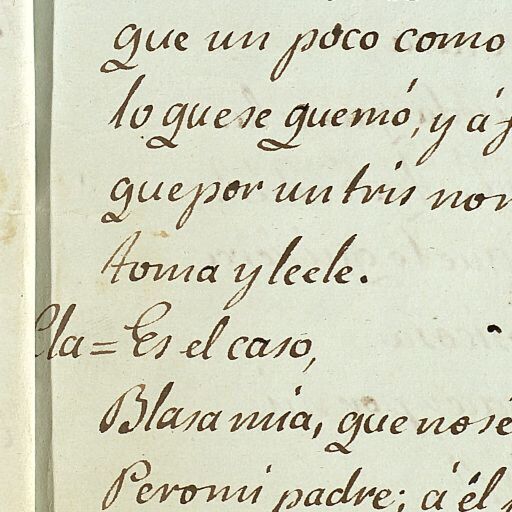 que un poco como
lo que se quemó, y á
que por un tris no
toma y leele.
Cla = Es el caso,
Blasa mia, que no sé
Pero mi padre; á él